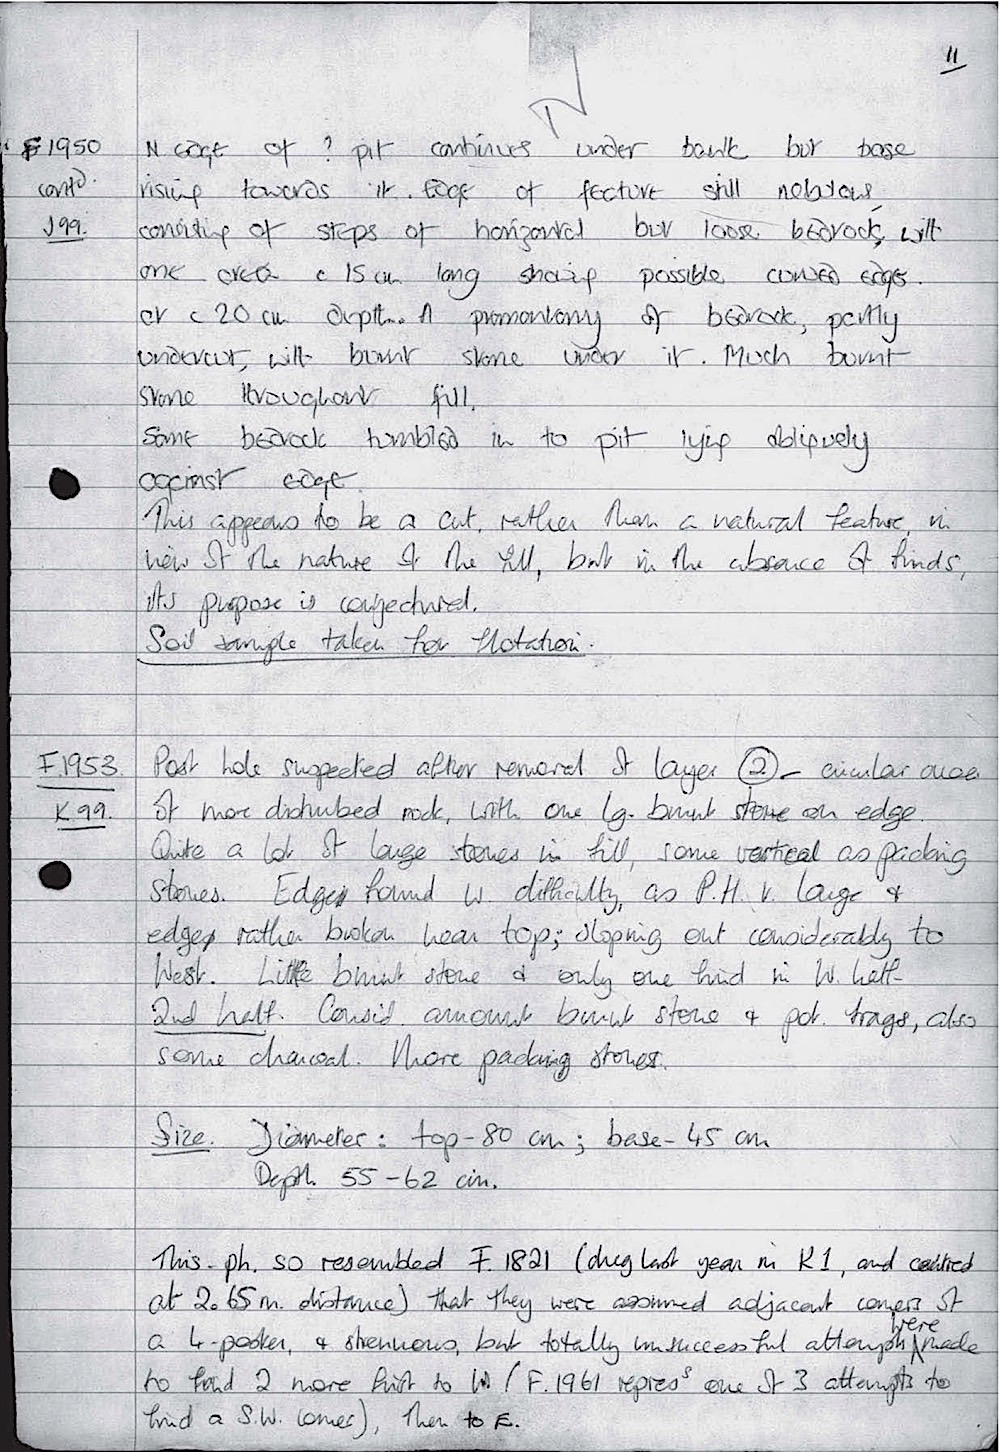 11
F1950 N edge of ? pit continues under bank but base
contd. rising towards it. Edge of feature still nebulous,
J99. consisting of steps of horizontal but loose bedrock, with
one area c 15 cm long showing possible curved edge.
at c 20 cm depth. A promontory of bedrock, partly
undercut, with burnt stone under it. Much burnt
stone throughout fill.
Some bedrock tumbled in to pit lying obliquely
against edge.
This appears to be a cut, rather than a natural feature, in
view of the nature of the fill, but in the absence of finds,
its purpose is conjectural.
Soil sample taken for flotation.
F.1953. Post hole suspected after removal of layer ② - circular area
K99. of more disturbed rock, with one lg. burnt stone on edge.
Quite a lot of large stones in fill, some vertical as packing
stones. Edges found w. difficulty, as P.H. v. large &
edges rather broken near top; sloping out considerably to
West. Little burnt stone & only one find in W. half.
2nd half. Consid. amount burnt stone & pot. frags, also
some charcoal. More packing stones.
Size. Diameter: top-80 cm; base-45 cm
Depth. 55-62 cm.
This ph. so resembled F.1821 (dug last year in K1, and centred
at 2.65 m. distance) that they were assumed adjacent corners of
a 4-poster, & strenuous, but totally unsuccessful attempts were made
to find 2 more first to W (F.1961 repres^s one of 3 attempts to
find a S.W. corner), then to E.